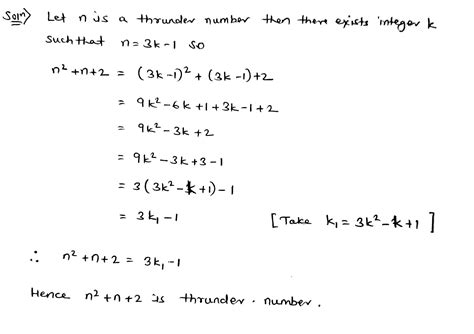 Soln) Let n is a thrunder number then there exists integer k
such that n = 3k-1 so
n² +n+2 = (3k-1)² + (3k-1)+2
= 9k² - 6k +1 +3k -1 +2
= 9k² - 3k +2
= 9k² - 3k +3 -1
= 3(3k² - k +1) -1
= 3k₁ -1 [Take k₁ = 3k² - k +1]
∴ n² +n+2 = 3k₁ -1
Hence n² +n+2 is thrunder . number .